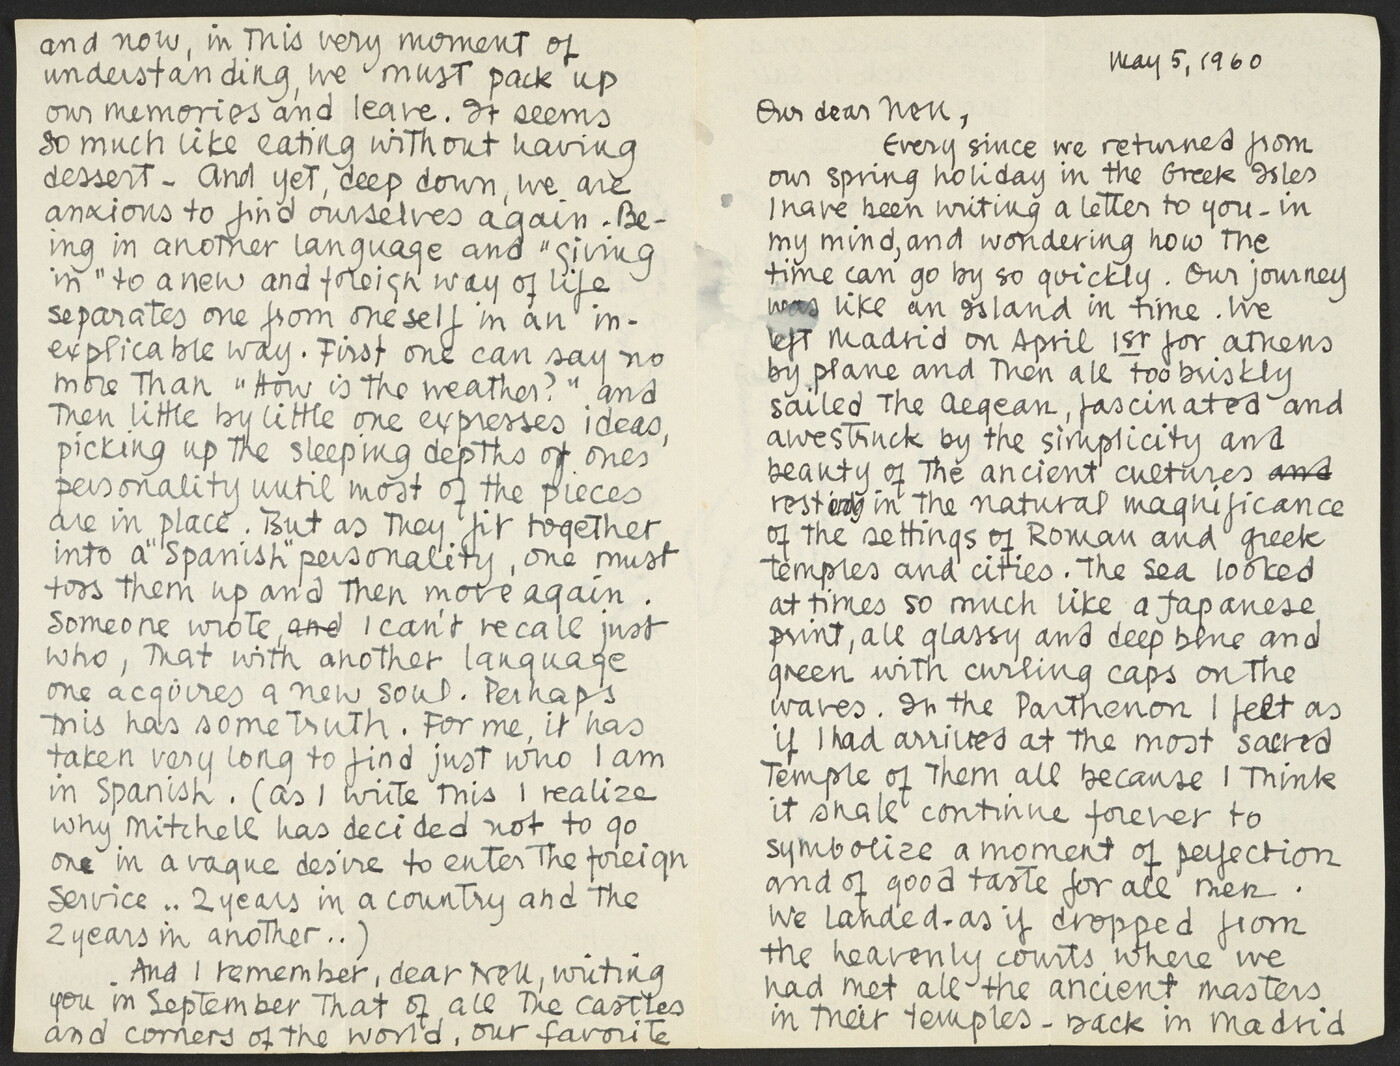 May 5, 1960
Our dear Nell,
Every since we returned from
our spring holiday in the Greek Isles
I have been writing a letter to you - in
my mind, and wondering how the
time can go by so quickly. Our journey
was like an island in time. We
left Madrid on April 1st for athens
by plane and then all too briskly
sailed the Aegean, fascinated and
awestruck by the simplicity and
beauty of the ancient cultures and
resting in the natural magnificance
of the settings of Roman and greek
temples and cities. The sea looked
at times so much like a Japanese
print, all glassy and deep blue and
green with curling caps on the
waves. In the Parthenon I felt as
if I had arrived at the most sacred
Temple of them all because I think
it shall continue forever to
symbolize a moment of perfection
and of good taste for all men.
We landed - as if dropped from
the heavenly courts where we
had met all the ancient masters
in their temples - back in Madrid
and now, in this very moment of
understanding, we must pack up
our memories and leave. It seems
so much like eating without having
dessert - And yet, deep down, we are
anxious to find ourselves again. Be-
ing in another language and "giving
in" to a new and foreign way of life
separates one from oneself in an in-
explicable way. First one can say no
more than "How is the weather?" and
then little by little one expresses ideas,
picking up the sleeping depths of ones
personality until most of the pieces
are in place. But as they fit together
into a "Spanish" personality, one must
toss them up and then move again.
Someone wrote, and I can't recall just
who, that with another language
one acquires a new soul. Perhaps
this has some truth. For me, it has
taken very long to find just who I am
in Spanish. (as I write this I realize
why Mitchell has decided not to go
one in a vague desire to enter the foreign
service .. 2 years in a country and the
2 years in another..)
And I remember, dear Nell, writing
you in September that of all the castles
and corners of the world, our favorite